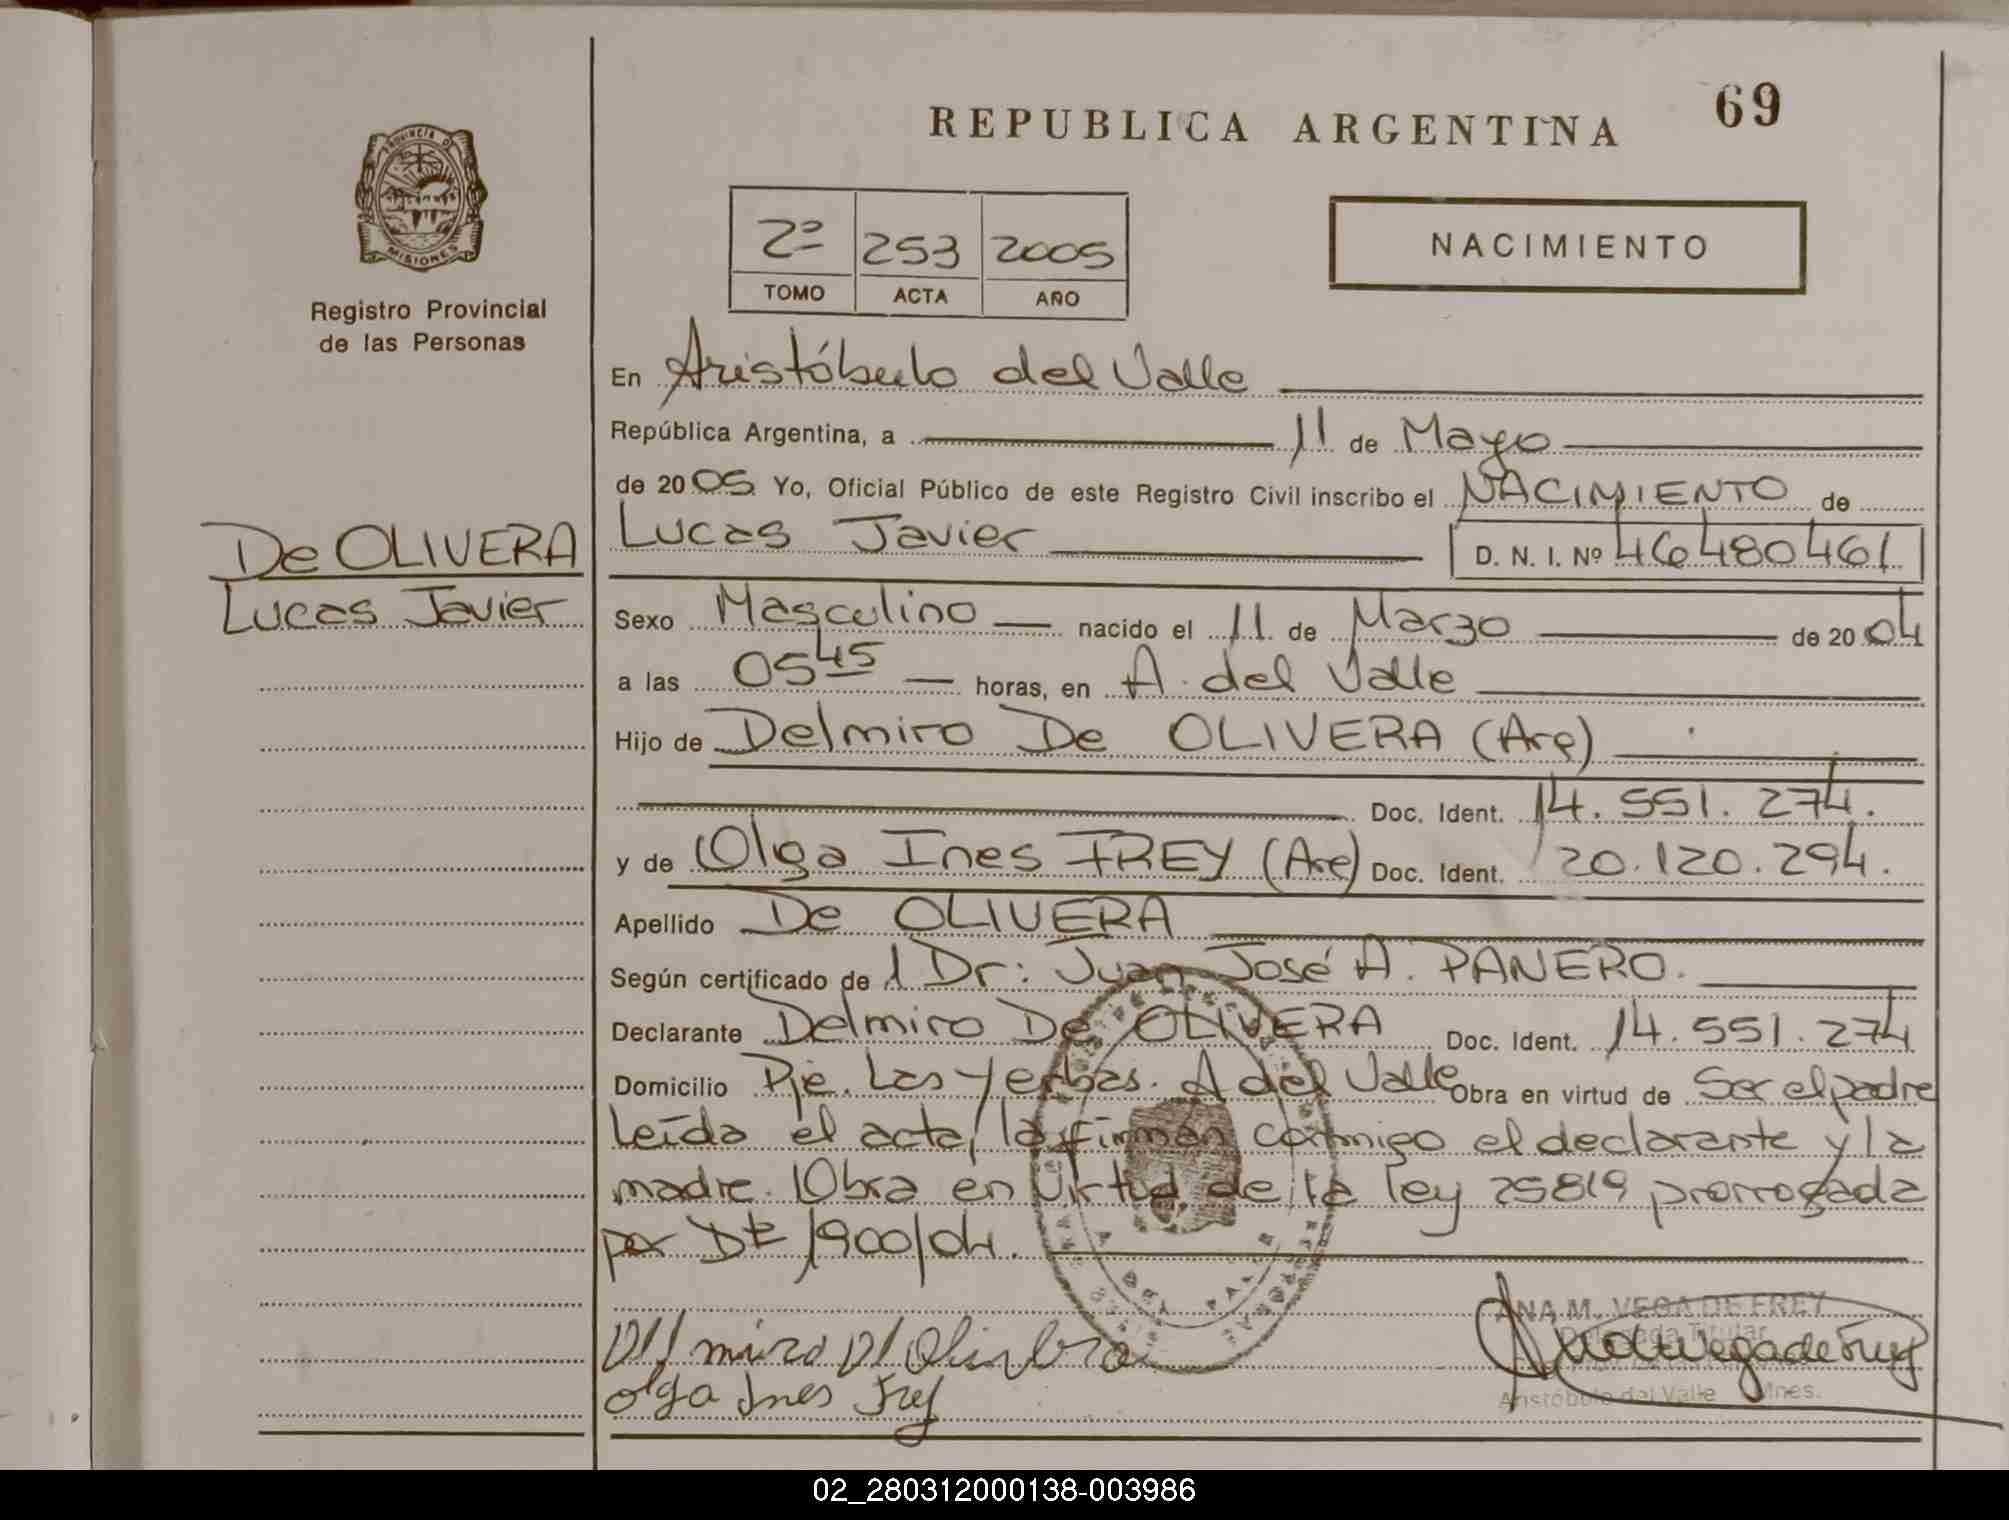 REPUBLICA ARGENTINA 69
PROVINCIA DE MISIONES
Registro Provincial
de las Personas
2º 253 2005
TOMO ACTA AÑO
NACIMIENTO
De OLIVERA
Lucas Javier
En Aristóbulo del Valle
República Argentina, a 11 de Mayo
de 2005 Yo, Oficial Público de este Registro Civil inscribo el NACIMIENTO de
Lucas Javier D. N. I. Nº 46480461
Sexo Masculino nacido el 11 de Marzo de 2004
a las 05 45 horas, en A. del Valle
Hijo de Delmiro De OLIVERA (Arg)
Doc. Ident. 14.551.274.
y de Olga Ines FREY (Arg) Doc. Ident. 20.120.294.
Apellido De OLIVERA
Según certificado de 1 Dr: Juan José A. PANERO.
Declarante Delmiro De OLIVERA Doc. Ident. 14.551.274
Domicilio Pje. Las Yerbas. A del Valle Obra en virtud de Ser el padre
Leída el acta, la firman conmigo el declarante y la
madre. Obra en virtud de la ley 25819 prorrogada
por Dt 1900/04.
ANA M. VEGA DE FREY
Delegada Titular
Aristóbulo del Valle Mnes.
Olga Ines Frey
02_280312000138-003986